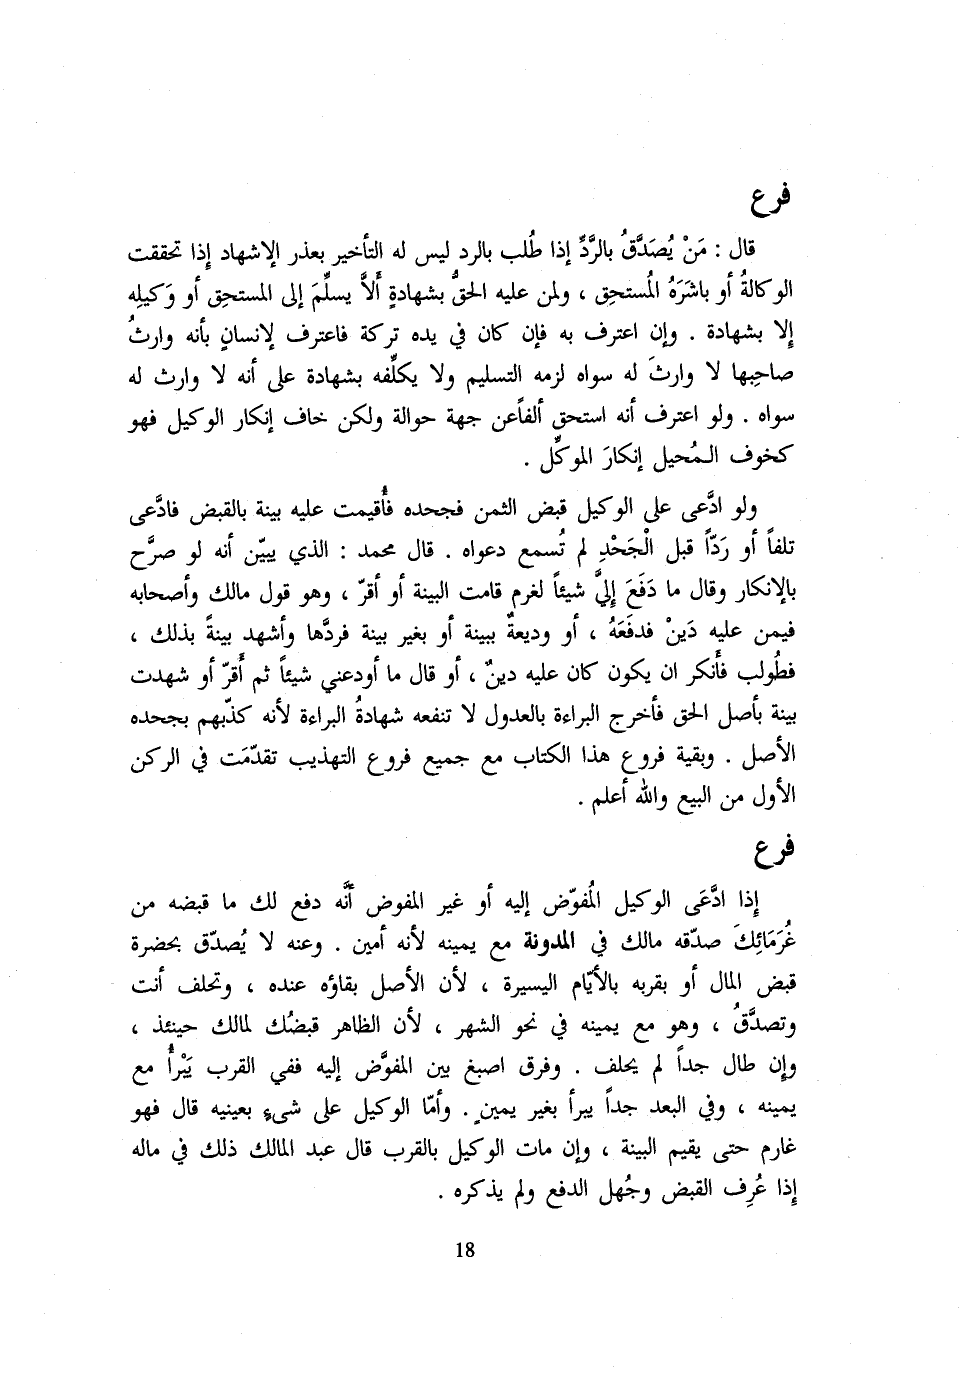 فرع
قال : مَنْ يُصَدَّقُ بالرَّدِّ إذا طُلب بالرد ليس له التأخير بعذر الإشهاد إِذا تحققت
الوكالةُ أو باشَرَهُ المُستحِق ، ولمن عليه الحقُّ بشهادةٍ أَلاَّ يسلِّمَ إلى المستحِق أو وَكيلِه
إِلا بشهادة . وإن اعترف به فإن كان في يده تركة فاعترف لإنسانٍ بأنه وارثُ
صاحِبها لا وارثَ له سواه لزمه التسليم ولا يكلِّفه بشهادة على أنه لا وارث له
سواه . ولو اعترف أنه استحق ألفاًعن جهة حوالة ولكن خاف إنكار الوكيل فهو
كخوف المُحيل إنكارَ الموكِّل .
ولو ادَّعى على الوكيل قبض الثمن فجحده فأُقيمت عليه بينة بالقبض فادَّعى
تلفاً أو رَدّاً قبل الْجَحْدِ لم تُسمع دعواه . قال محمد : الذي يبيّن أنه لو صرَّح
بالإنكار وقال ما دَفَعَ إِليَّ شيئاً لغرم قامت البينة أو أقرّ ، وهو قول مالك وأصحابه
فيمن عليه دَينْ فدفَعَهُ ، أو وديعةٌ ببينة أو بغير بينة فردَّها وأشهد بينةً بذلك ،
فطُولب فأَنكر ان يكون كان عليه دينٌ ، أو قال ما أودعني شيئاً ثم أَقرّ أو شهدت
بينة بأصل الحق فأخرج البراءة بالعدول لا تنفعه شهادةُ البراءة لأنه كذّبهم بجحده
الأصل . وبقية فروع هذا الكتاب مع جميع فروع التهذيب تقدّمَت في الركن
الأول من البيع والله أعلم .
فرع
إِذا ادَّعَى الوكيل المُفوّض إليه أو غير المفوض أنَّه دفع لك ما قبضه من
غُرَمَائِكَ صدّقه مالك في المدونة مع يمينه لأنه أمين . وعنه لا يُصدّق بحضرة
قبض المال أو بقربه بالأيّام اليسيرة ، لأن الأصل بقاؤه عنده ، وتحلف أنت
وتصدَّقُ ، وهو مع يمينه في نحو الشهر ، لأن الظاهر قبضُك لمالك حينئذ ،
وإِن طال جداً لم يحلف . وفرق اصبغ بين المفوَّض إليه ففي القرب يَبْرأُ مع
يمينه ، وفي البعد جداً يبرأ بغير يمينٍ . وأمّا الوكيل على شيءٍ بعينيه قال فهو
غارم حتى يقيم البينة ، وإن مات الوكيل بالقرب قال عبد المالك ذلك في ماله
إِذا عُرِف القبض وجُهل الدفع ولم يذكره .
18